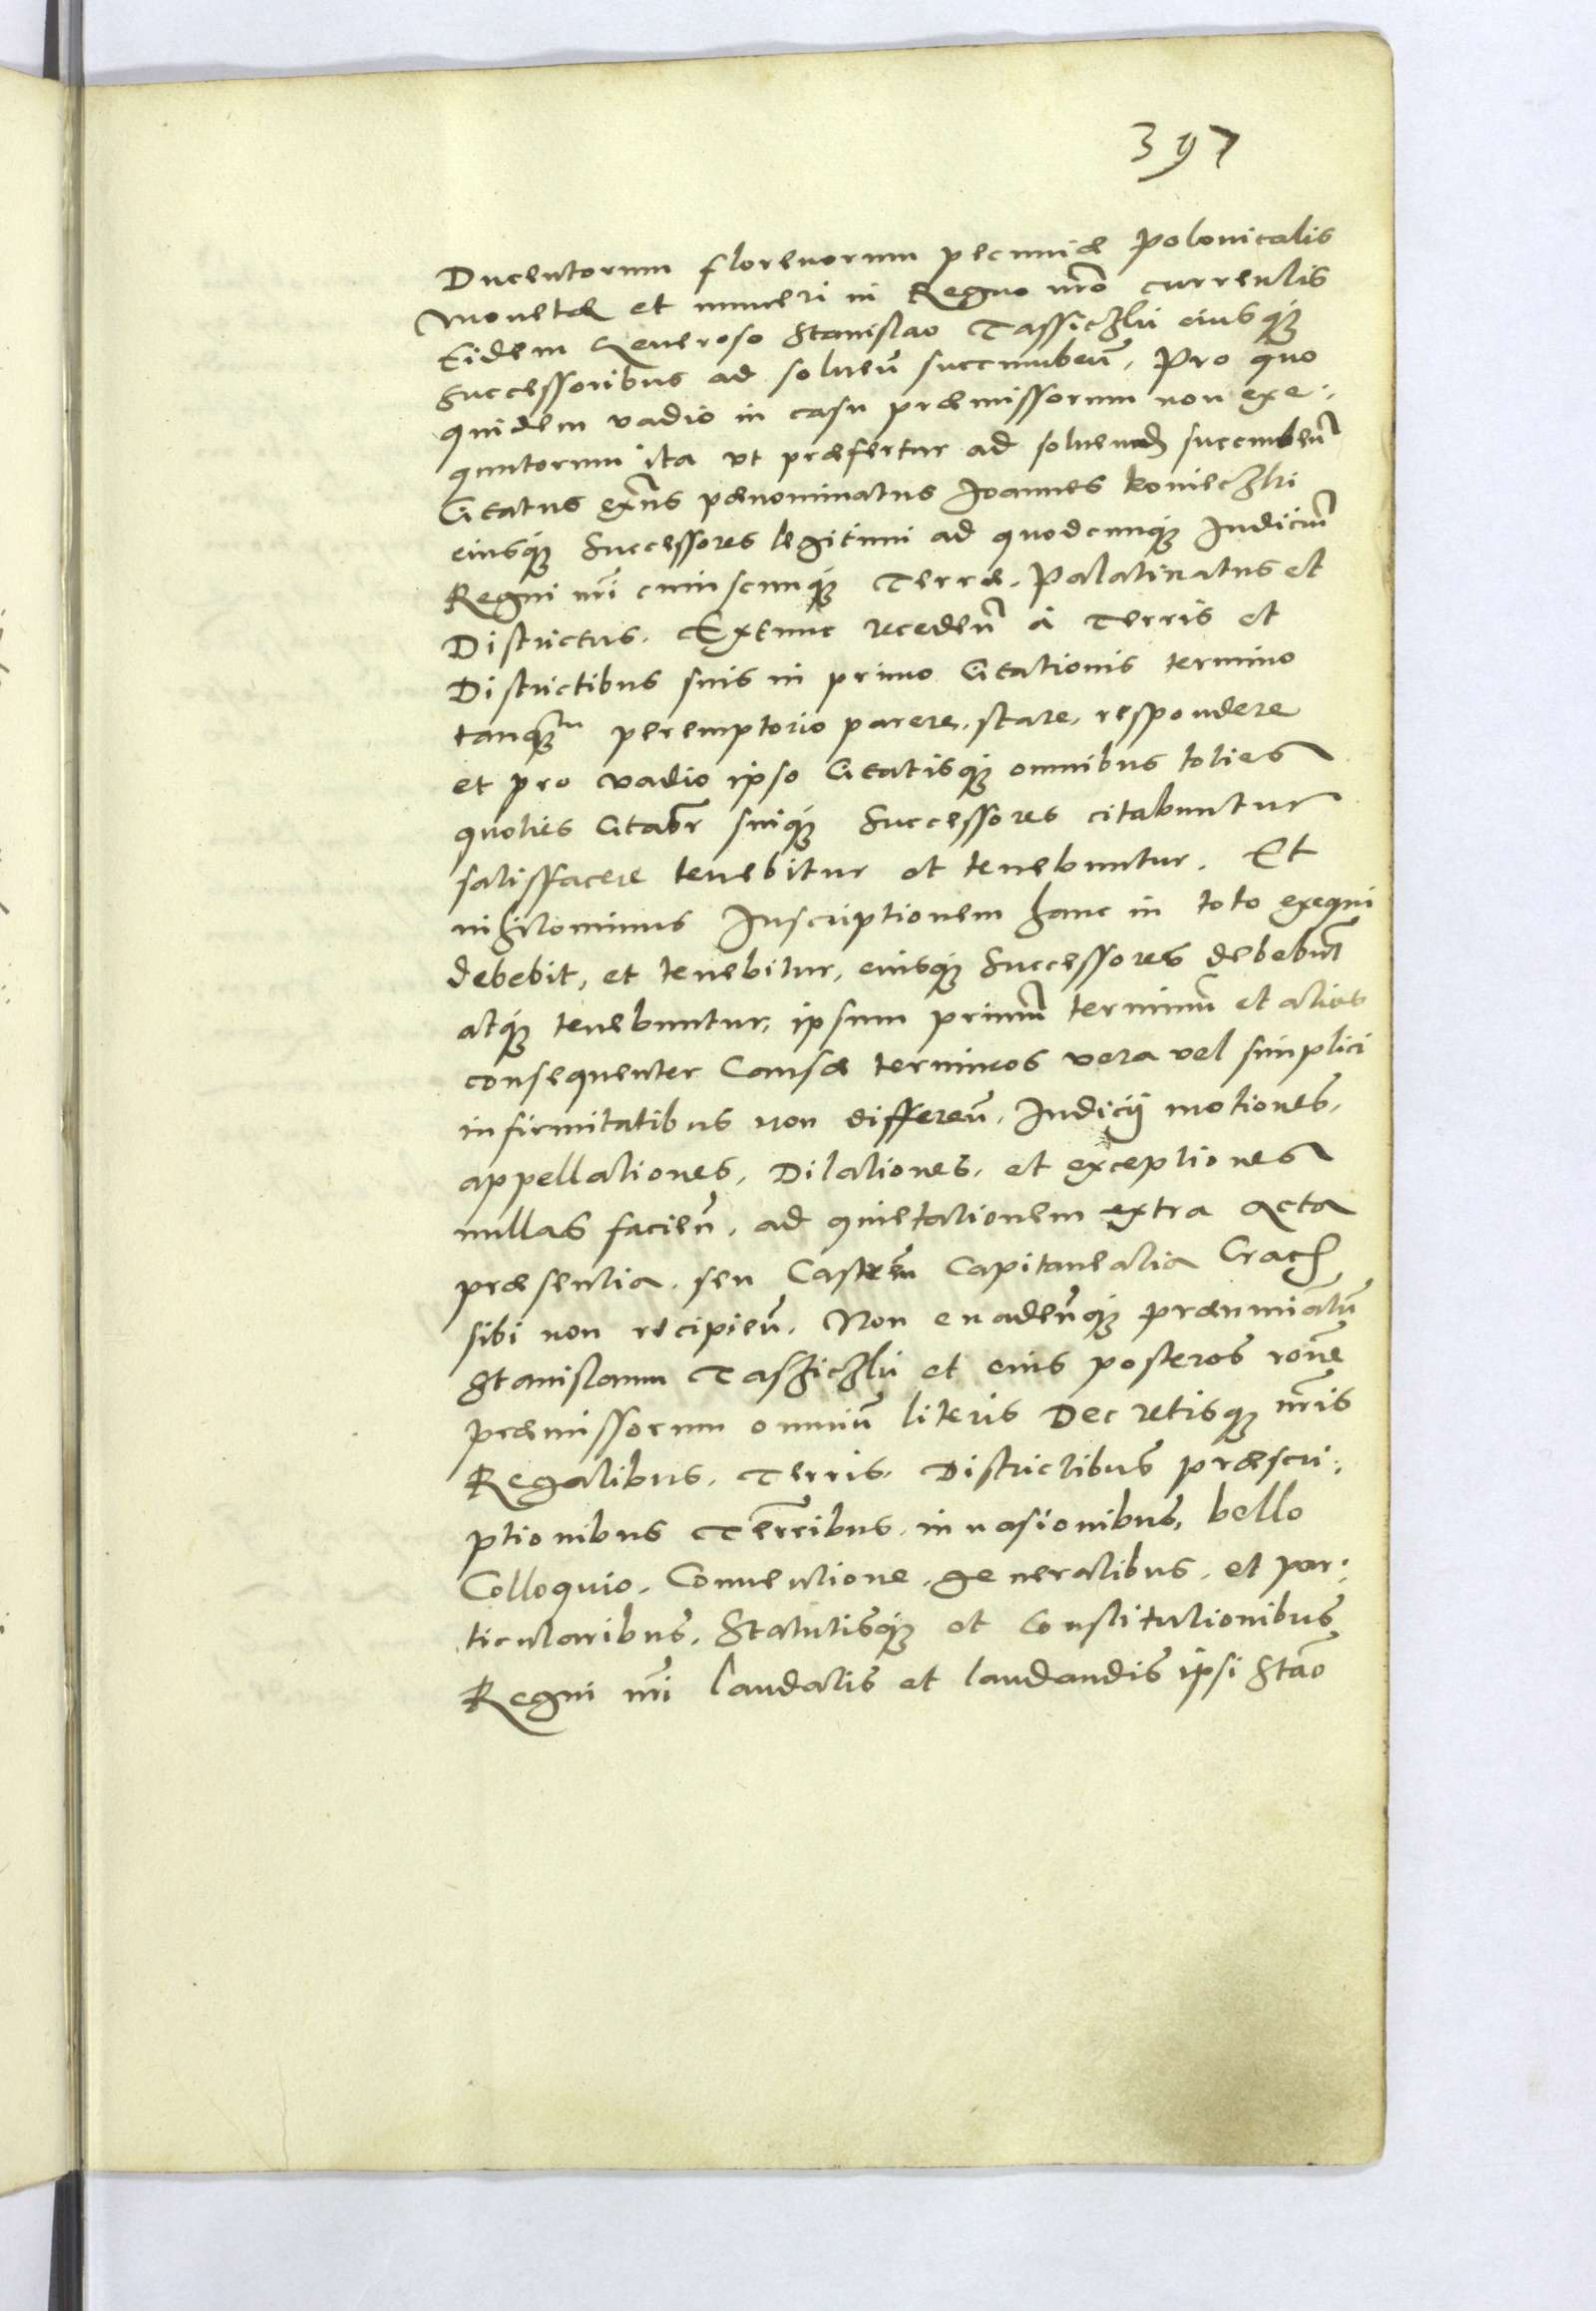 397
Ducentorum florenorum pecuniæ Polonicalis
monetæ et numeri in Regno nr̃o currentis
Eidem Generoso Stanislao Tassiczki eiusq́
Successoribus ad soluen̄ succumben̄. Pro quo
quidem vadio in casu præmissorum non exe:
quutorum ita vt præfertur ad soluend succumben̄
Citatus exñs pænominatus Joannes Konieczki
eiusq́ Successores legitimi ad quodcunq́ Judiciū
Regni nr̃i cuiuscunq́ Terræ. Palatinatus et
Districtus. Extunc receden̄ à Terris et
Districtibus suis in primo Citationis termino
tanq̃ peremptorio parere. stare. respondere
et pro vadio ipso Citatisq́ omnibus toties
quoties Citabr̃ suiq́ Successores citabuntur
satisfacere tenebitur et tenebuntur. Et
nihilominus Inscriptionem hanc in toto exequi
debebit, et tenebitur, eiusq́ Successores debebūt
atq́ tenebuntur, ipsum primū terminū et alios
consequenter Causæ terminos vera vel simplici
infirmitatibus non differen̄. Judicij motiones,
appellationes, Dilationes, et exceptiones
nullas facien̄. ad quietationem extra acta
præsentia. seu Castren̄ Capitanealia Crac
sibi non recipien̄. Non euaden̄q́ prænōiatū
Stanislaum Tasziczki et eius posteros rōne
præmissorum omniū literis Decretisq́ nr̃is
Regalibus. Terris. Districtibus præscri:
ptionibus Terr̃ibus. inuasionibus, bello
Colloquio. Conuentione. generalibus. et par:
ticularibus. Statutisq́ et Constitutionibus
Regni nr̃i laudatis et laudandis ipsi Stāo